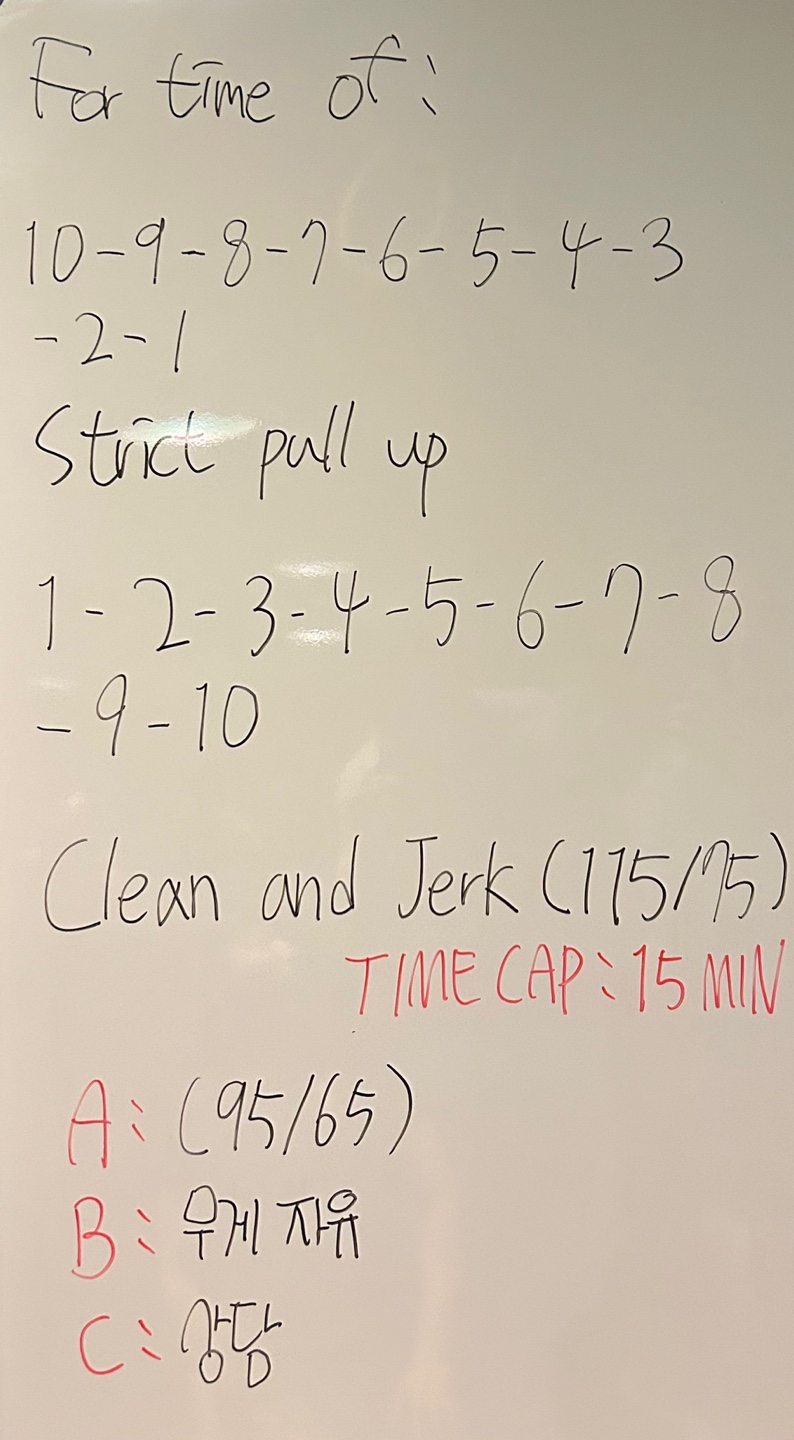 For time of:
10-9-8-7-6-5-4-3
-2-1
Strict pull up
1-2-3-4-5-6-7-8
-9-10
Clean and Jerk (115/75)
TIME CAP: 15 MIN
A: (95/65)
B: 무게 자유
C: 상담